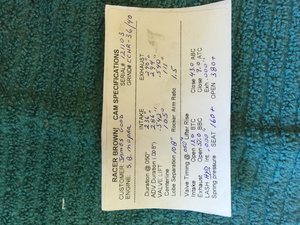 RACER BROWN CAM SPECIFICATIONS
SERIAL# 121103
CUSTOMER: JAMES GOOD GRIND# CCHR-36/40
ENGINE: S.B. MOPAR
INTAKE EXHAUST
Duration @ .050" 236° 240°
ADV. Duration (.008") 294°
VALVE LIFT
Centerline 105° 111
Lobe Separation 108° Rocker Arm Ratio 1.5
Valve Timing @ .050" Lifter Rise
Intake Open 13.0 BTC Close 43.0 ABC
Exhaust Open 52.0 BBC Close 9.0 ATC
LASH HYD Int .000" Exh .000"
Spring pressure SEAT 160# OPEN 380#